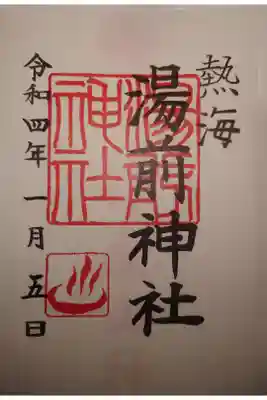 熱海
湯前神社
湯前神社
令和四年一月五日